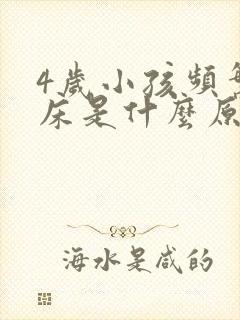 4歲小孩頻
床是什麼原
海水是咸的